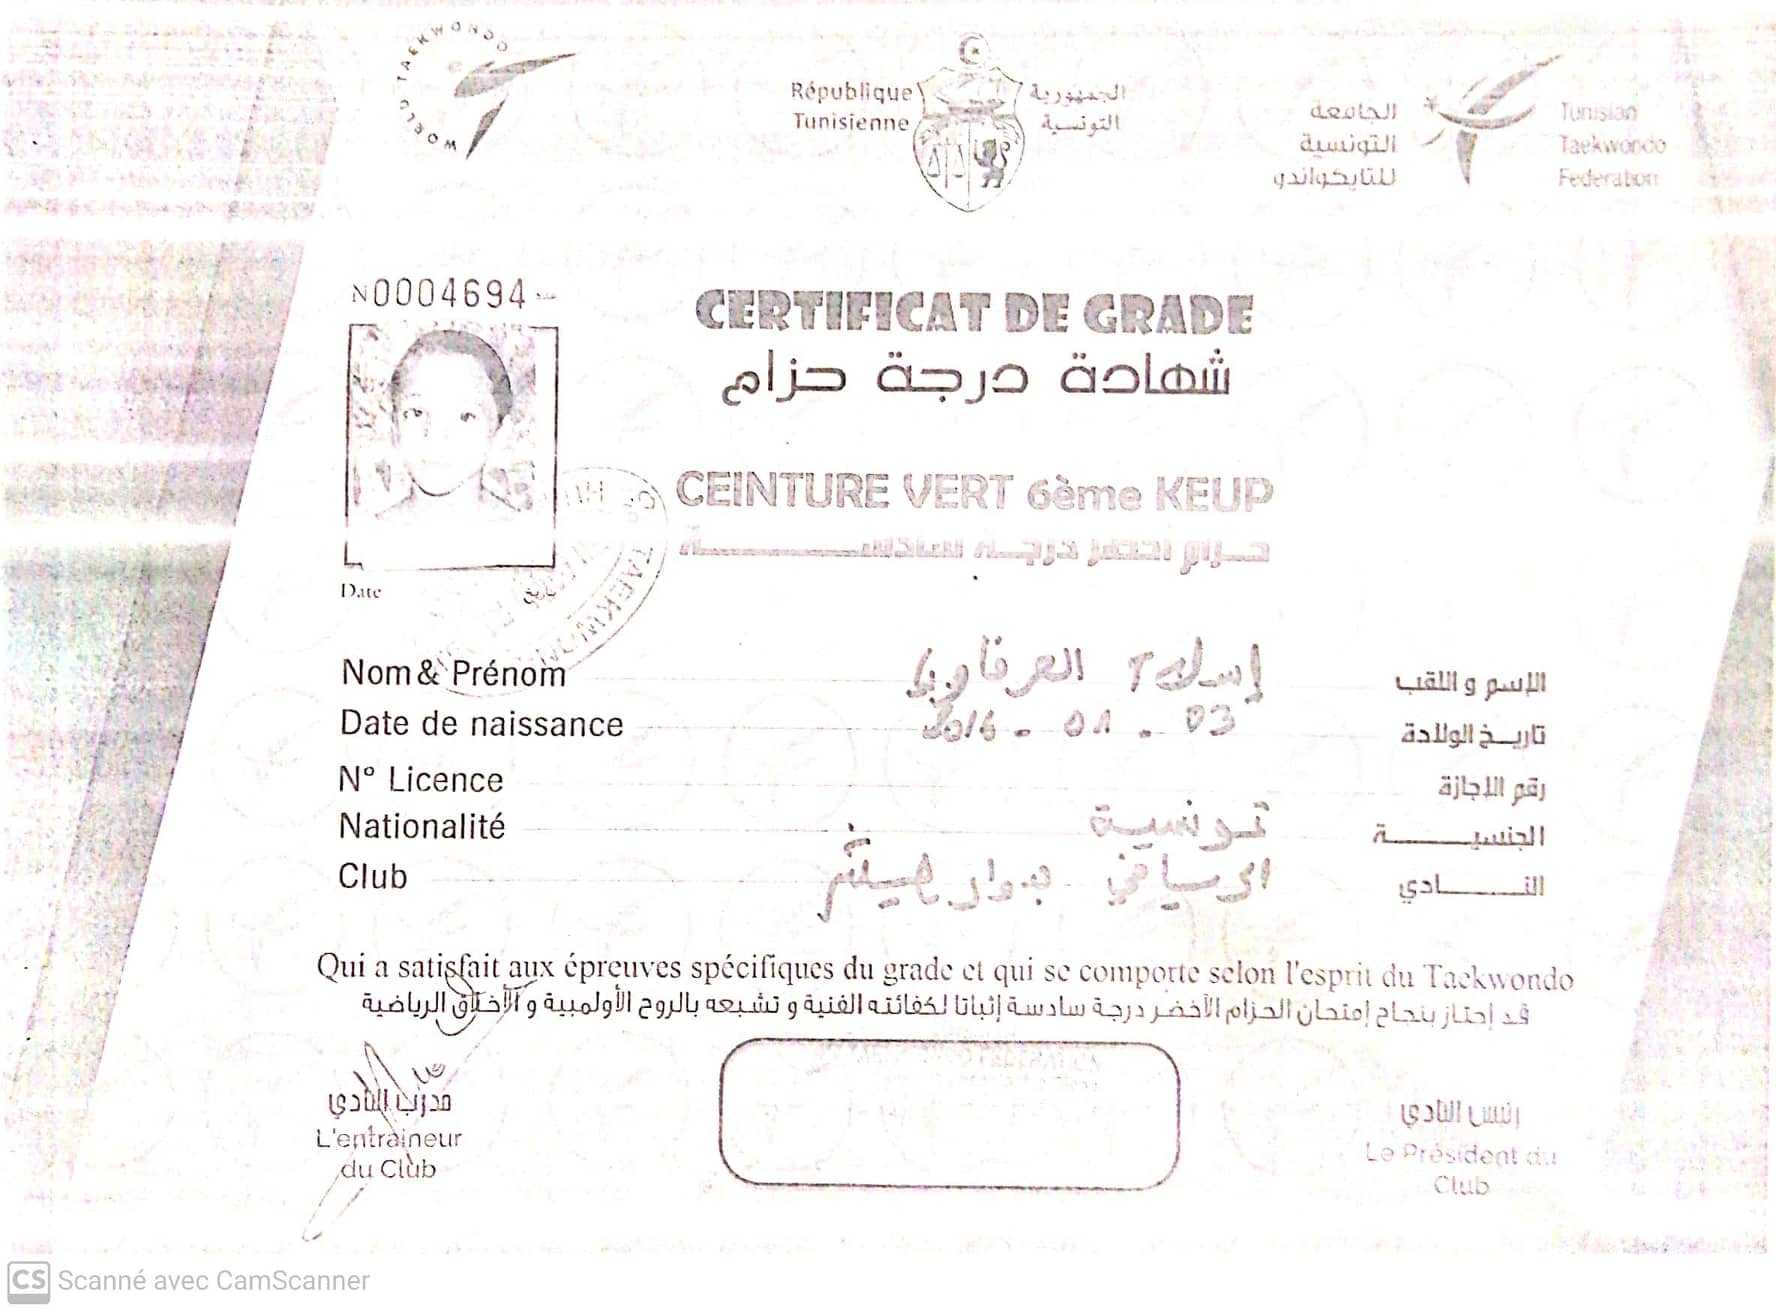 WORLD TAEKWONDO
République Tunisienne
الجمهورية التونسية
الجامعة التونسية للتايكواندو
Tunisian Taekwondo Federation
N0004694
CERTIFICAT DE GRADE
شهادة درجة حزام
CEINTURE VERT 6ème KEUP
حزام أخضر درجة سادسة
Date تاريخ
Nom & Prénom العرفاوي الإسم و اللقب
Date de naissance 03 - 01 - 2016 تاريخ الولادة
N° Licence رقم الإجازة
Nationalité تونسية الجنسية
Club الرياضي بدوار هيشر النادي
Qui a satisfait aux épreuves spécifiques du grade et qui se comporte selon l'esprit du Taekwondo
قد إجتاز بنجاح إمتحان الحزام الأخضر درجة سادسة إثباتا لكفائته الفنية و تشبعه بالروح الأولمبية و الأخلاق الرياضية
مدرب النادي
L'entraineur du Club
رئيس النادي
Le Président du Club
CS Scanné avec CamScanner